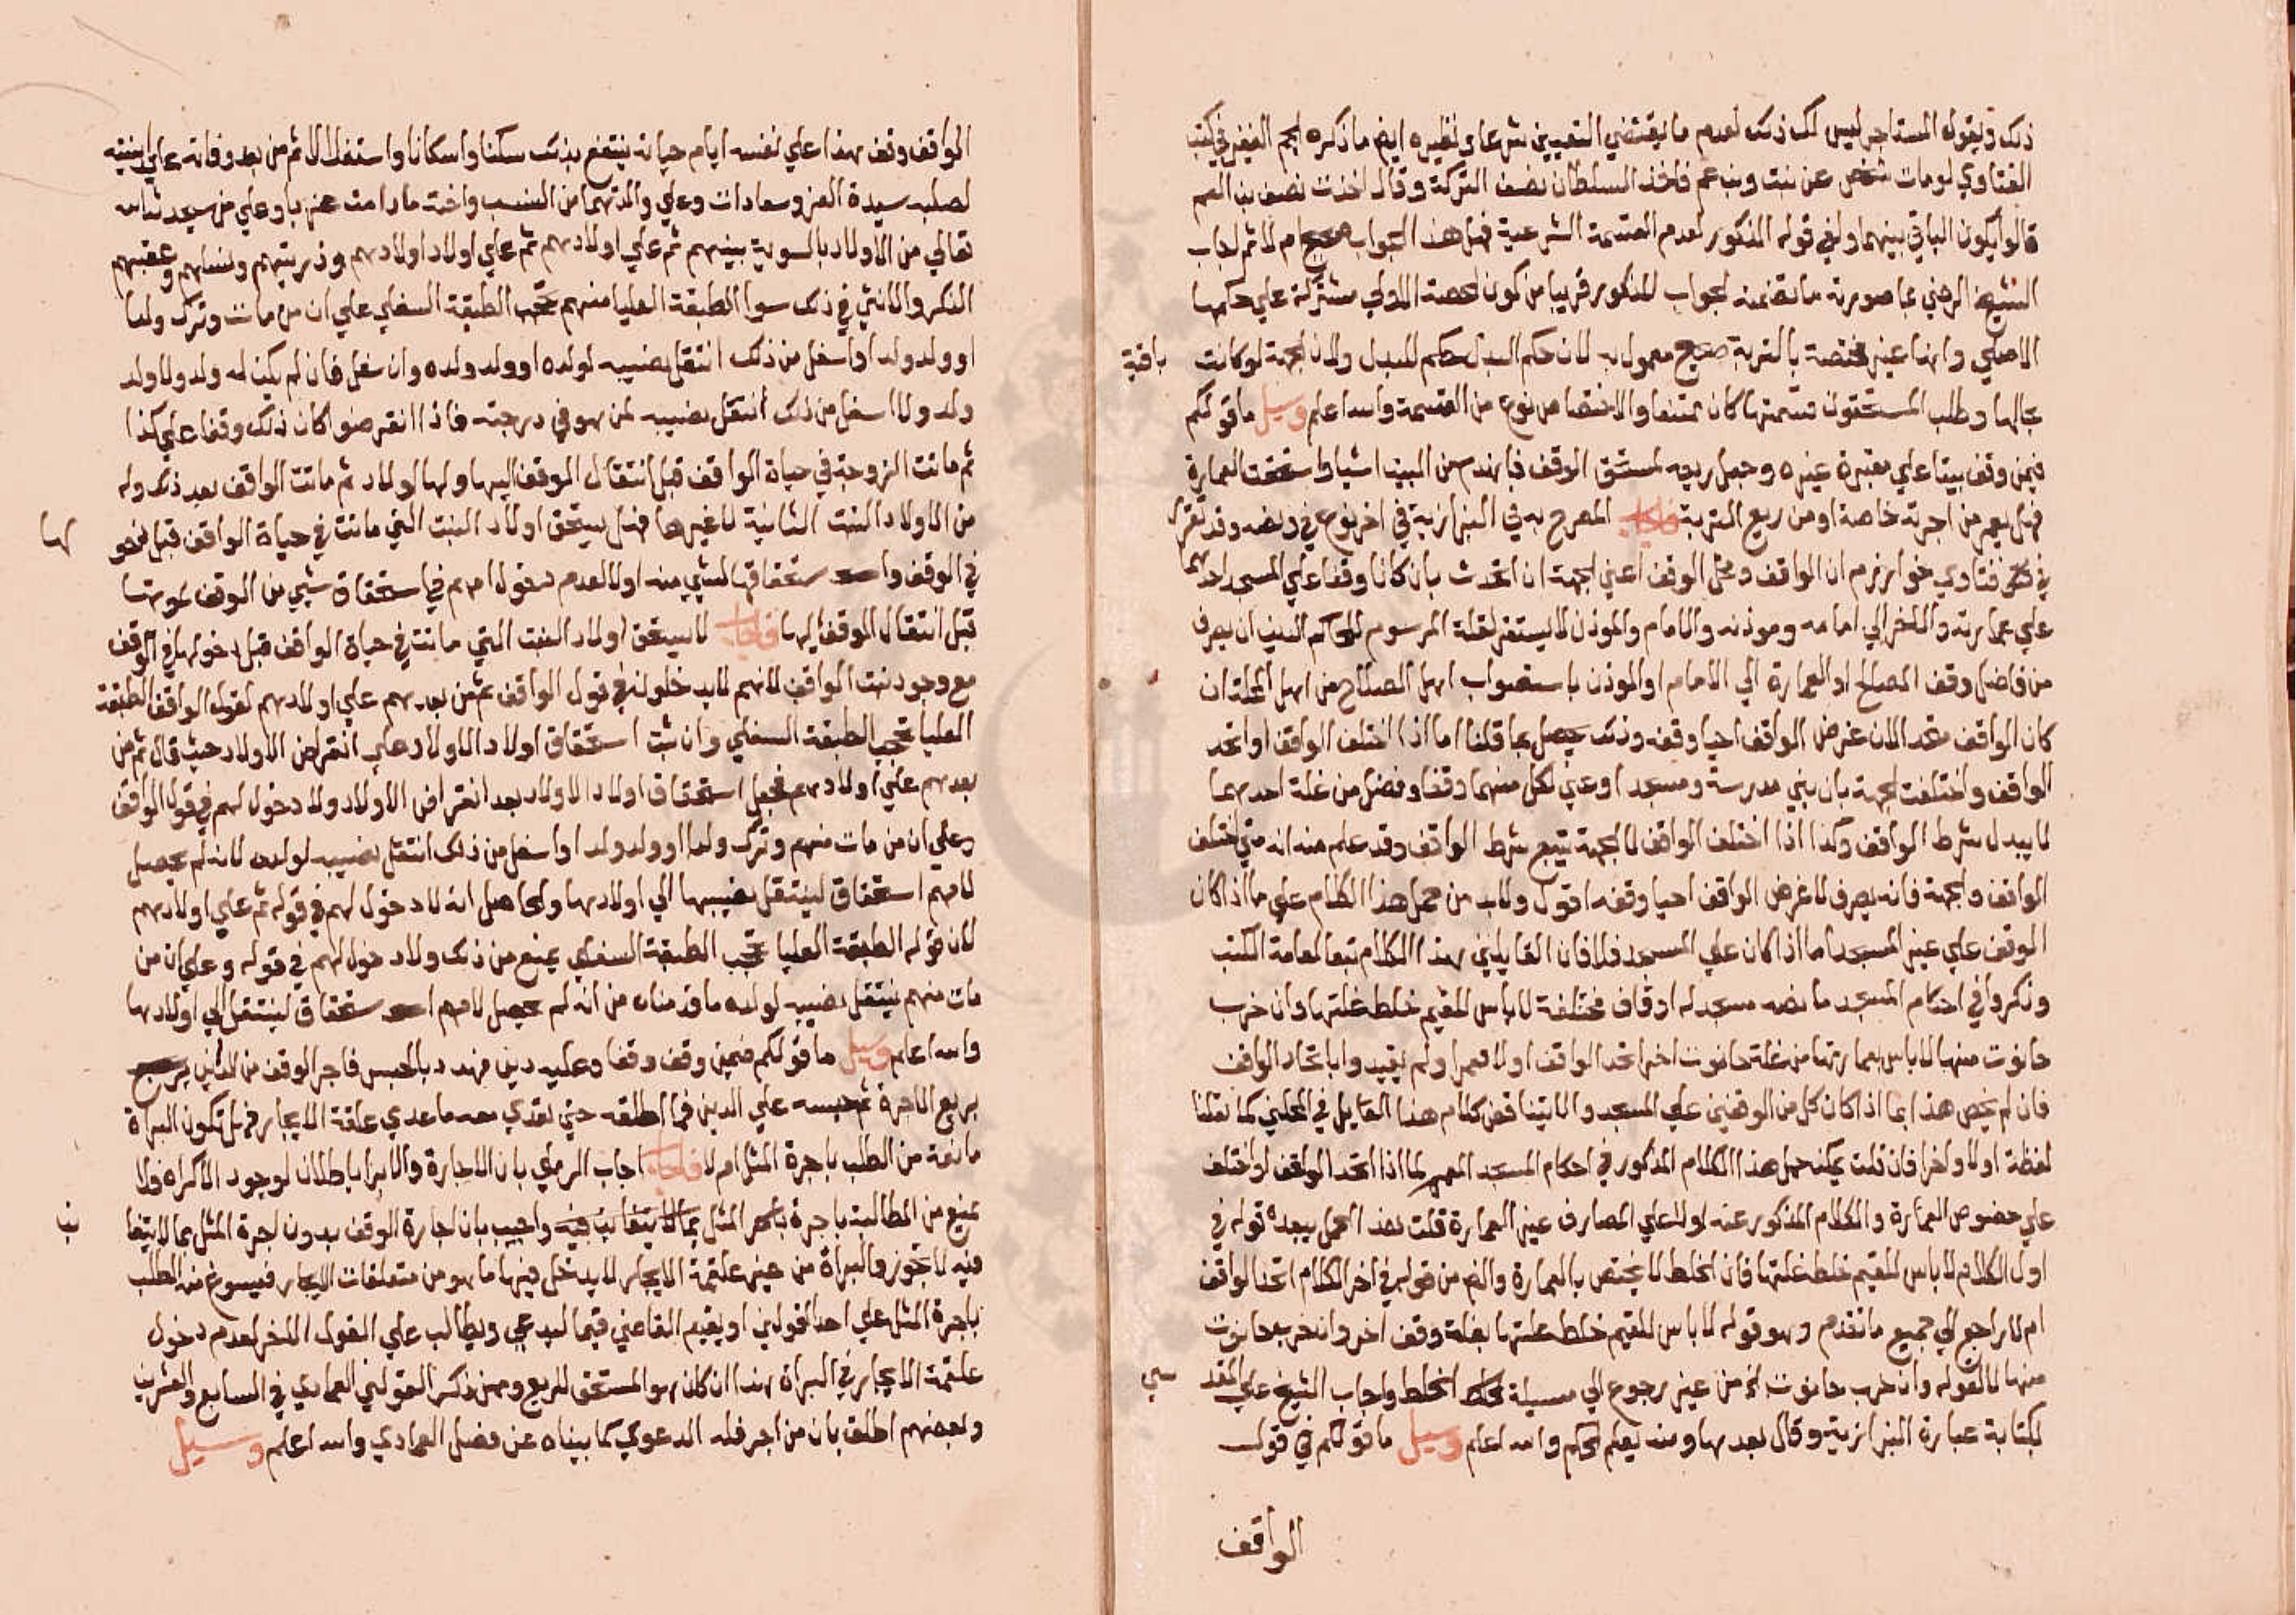 ذلك ويقول المستاجر ليس لك ذلك لعدم ما يقتضي التعيين شرعا في نظيره ايضا ما ذكره الجم الغفير في كتب
الفتاوي لو مات شخص عن بنت وبن عم فاخذ السلطان نصف التركة وقال اخذت نصف بن العم
قالوا يكون الباقي بينهما ولغي قوله المذكور لعدم القسمة الشرعية فهل هذا الجواب صحيح ام لا ثم اجاب
الشيخ الرضي بما صورته ما تضمنه الجواب المذكور قريبا من كون الحصة الاولي مشتركة علي حكمها
الاصلي وانها غير مختصة بالتربة صحيح معمول به لان حكم البدل حكم المبدل ولان الجهة لو كانت باقية
بحالها وطلب المستحقون قسمتها كان ممتنعا والاختصاص نوع من القسمة والله اعلم وسيل ما قولكم
فيمن وقف بيتا علي مقبرة غيره وجعل ريعه لمستحق الوقف فانهدم من البيت اشيا واستحقت العمارة
فهل يعمر من اجرته خاصة او من ريع التربة فاجاب المصرح به في البزازية في اخر نوع في وقفه وقد تقرر
في فتاوي خوارزم ان الواقف ومحل الوقف اعني الجهة ان اتحدث بان كانا وقفا علي المسجد احدهما
علي عمارته والاخر الي امامه ومؤذنه والامام والموذن لا يستقر لقلة المرسوم للحاكم الدين ان يصرف
من فاضل وقف المصالح او العمارة الي الامام او الموذن باستصواب اهل الصلاح من اهل المحلة ان
كان الواقف متحد الان غرض الواقف احيا وقفه وذلك يحصل بما قلنا اما اذا اختلف الواقف او اتحد
الواقف واختلفت الجهة بان بني مدرسة ومسجدا وعين لكل منهما وقفا وفضل من غلة احدهما
لا يبدل شرط الواقف وكذا اذا اختلف الواقف لا الجهة يتبع شرط الواقف وقد علم منه انه متي اختلف
الواقف والجهة فانه يصرف لا غرض الواقف احيا وقفه اقول ولابد من حمل هذا الكلام علي ما اذا كان
الوقف علي غير المسجد اما اذا كان علي المسجد فلا فان القايلين بهذا الكلام تبعا لعامة الكتب
وذكروا في احكام المسجد ما نصه مسجد له اوقاف مختلفة لا باس للقيم خلط غلتها وان خرب
حانوت منها لا باس بعمارتها من غلة حانوت اخر اتحد الواقف او لا فعمم ولم يقيدوا باتحاد الواقف
فان لم يخص هذا بما اذا كان كل من الوقفين علي المسجد والا يتناقض كلام هذا القايل في المحلين كما نقلنا
لفظه اولا واخرا فان قلت يمكن حمل هذا الكلام المذكور في احكام المسجد المعمم لما اذا اتحد الواقف او اختلف
علي خصوص العمارة والكلام المذكور عنه اولا علي المصارف غير العمارة قلت هذا الحمل يبعده قوله في
اول الكلام لا باس للقيم خلط غلتها فان الخلط لا يختص بالعمارة والضم من قوله في اخر الكلام اتحد الواقف
ام لا راجع الي جميع ما تقدم وهو قوله لا باس للقيم خلط غلتها بغلة وقف اخر وان خرب حانوت
منها لا لقوله وان خرب حانوت الخ من غير رجوع الي مسيلة الخلط واجاب الشيخ علي المقدسي
بكتابة عبارة البزازية وقال بعدها ومنه يعلم الحكم والله اعلم وسيل ما قولكم في قول
الواقف
الواقف وقف هذا علي نفسه ايام حياته ينتفع بذلك سكنا واسكانا واستغلالا ثم من بعد وفاته علي ابنتيه
لصلبه سيدة العز وسعادات وعلي والدتهما من النسب واخت ما دامت عزبا وعلي من سيحدث الله
تعالي من الاولاد بالسوية بينهم ثم علي اولادهم ثم علي اولاد اولادهم وذريتهم ونسلهم وعقبهم
الذكر والانثي في ذلك سوا الطبقة العليا منهم تحجب الطبقة السفلي علي ان من مات وترك ولدا
او ولد ولد او اسفل من ذلك انتقل نصيبه لولده او ولد ولده وان سفل فان لم يكن له ولد ولا ولد
ولد ولا اسفل من ذلك انتقل نصيبه لمن هو في درجته فاذا انقرضوا كان ذلك وقفا علي كذا
ثم ماتت الزوجة في حياة الواقف قبل انتقال الوقف اليها ولها اولاد ثم مات الواقف بعد ذلك وله
من الاولاد البنت الثانية لا غيرها فهل يستحق اولاد البنت التي ماتت في حياة الواقف قبل دخولها
في الوقف واستحقاقها لشي منه او لا لعدم دخول امهم في استحقاق شي من الوقف لموتها
قبل انتقال الوقف اليها فاجاب لا يستحق اولاد البنت التي ماتت في حياة الواقف قبل دخولها في الوقف
مع وجود بنت الواقف لانهم لا يدخلون في قول الواقف ثم من بعدهم علي اولادهم لقول الواقف الطبقة
العليا تحجب الطبقة السفلي وان ثبت استحقاق اولاد الاولاد علي انقراض الاولاد حيث قال ثم من
بعدهم علي اولادهم فجعل استحقاق اولاد الاولاد بعد انقراض الاولاد ولا دخول لهم في قول الواقف
وعلي ان من مات منهم وترك ولدا او ولد ولد او اسفل من ذلك انتقل نصيبه لولده لانه لم يحصل
لامهم استحقاق لينتقل نصيبها الي اولادها والحاصل انه لا دخول لهم في قوله ثم علي اولادهم
لان قوله الطبقة العليا تحجب الطبقة السفلي يمنع من ذلك ولا دخول لهم في قوله وعلي ان من
مات منهم ينتقل نصيبه لولده ما قدمناه من انه لم يحصل لامهم استحقاق لينتقل الي اولادها
والله اعلم وسيل ما قولكم فيمن وقف وقفا وعليه دين فهدد بالحبس فاجر الوقف من الداين
بربع الاجرة ثم حبسه علي الدين فما اطلقه حتي تعدي معه ما عدي علقة الايجار فهل تكون البراة
مانعة من الطلب باجرة المثل ام لا فاجاب اجاب الرملي بان الاجارة والابرا باطلان لوجود الاكراه ولا
يمنع من المطالبة باجرة المثل بما لا يتغابن فيه واجيب بان اجارة الوقف بدون اجرة المثل بما لا يتغابن
فيه لا تجوز والبراة من غير علقة الايجار لا يدخل فيها ما هو من متعلقات الايجار فيسوغ منه الطلب
باجرة المثل علي احد القولين او يقيم القاضي قيما ليدعي ويطالب علي القول الاخر لعدم دخول
علقة الايجار في البراة هذا ان كان هو المستحق للريع وممن ذكر القولين العمادي في السابع والعشرين
وبعضهم اطلق بان من اجر فله الدعوي كما بيناه عن فصل العمادي والله اعلم وسيل